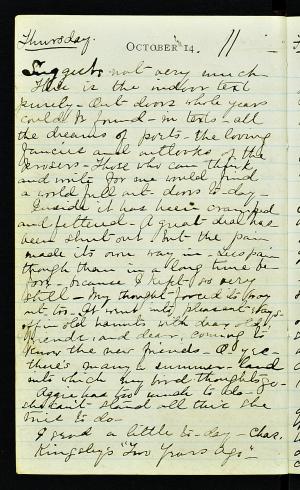 Thursday. October 14. 11
Suggests not very much
There is the indoor text
purely - Out doors whole years
could be found - in texts - all
the dreams of poets - the loving
fancies and outlooks of the
Those who can think
and write for me would find
a world full out doors to-day -
Inside it has been cramped
and fettered - A great deal has
been shut out but the pain
made its own way in - Less pain
though than in a long time be-
fore, because I kept so very
still - My thought forced to pray
out too - It went into pleasant ways -
off in old haunts with dear old
friends, and dear, coming to
know the new friends - O yes -
there's many a summer-land
into which my tired thoughts go -
Aggie has too much to do -
she can't stand all this she
tries to do -
I read a little to-day - Chas.
Kingsley's "Two Years Ago"